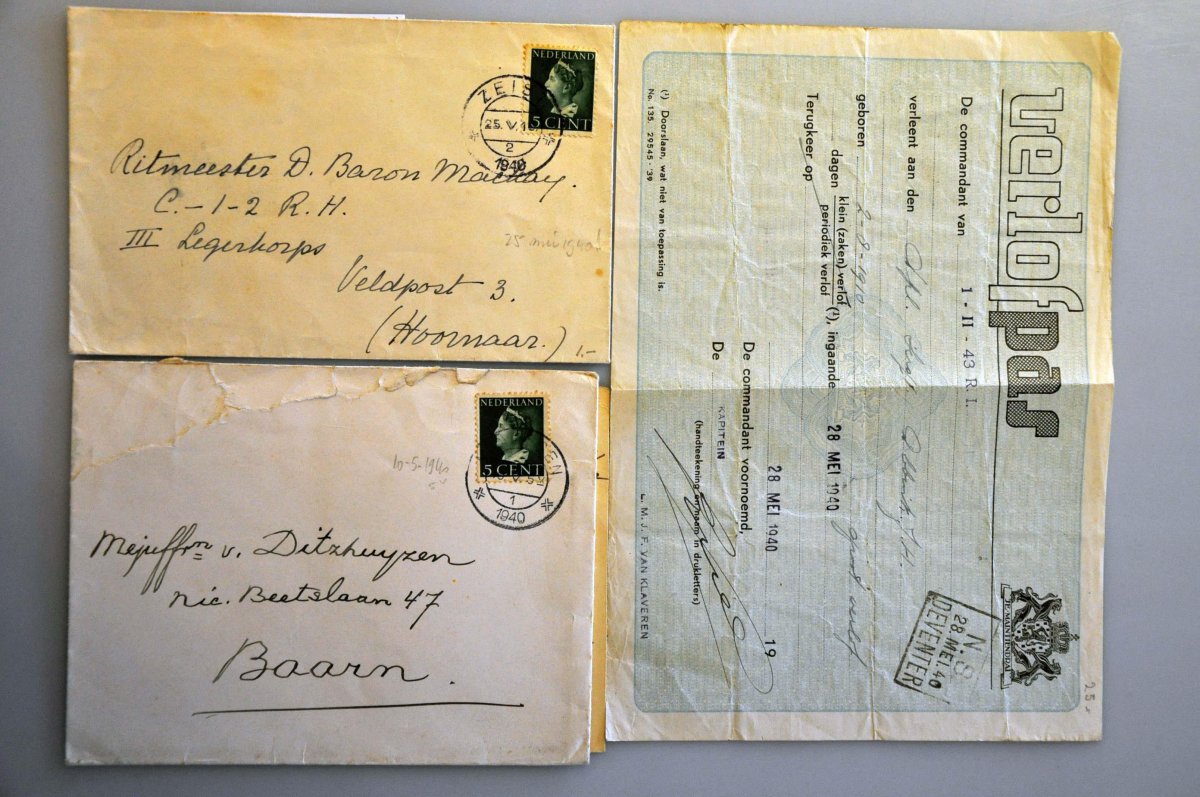 NEDERLAND
5 CENT
ZEIS
25.V.1
2
1940
Ritmeester D. Baron Mackay.
C.-1-2 R.H.
III Legerkorps
25 mei 1940
Veldpost 3.
(Hoornaar.)
1.-
NEDERLAND
5 CENT
EN
1
1940
10-5-1940
Mejuffrn v. Ditzhuyzen
Nic. Beetslaan 47
Baarn.
verlofpas
JE MAINTIENDRAI
25
De commandant van 1 - II - 43 R. I.
verleent aan den
geboren 2-8-1910
dagen klein (zaken) verlof
periodiek verlof (¹), ingaande 28 MEI 1940
Terugkeer op
N.S.
28 MEI.40
DEVENTER
28 MEI 1940 19
De commandant voornoemd,
De KAPITEIN
(handteekening en naam in drukletters)
L. M. J. F. VAN KLAVEREN
(¹) Doorslaan, wat niet van toepassing is.
No. 135. 29545 - '39